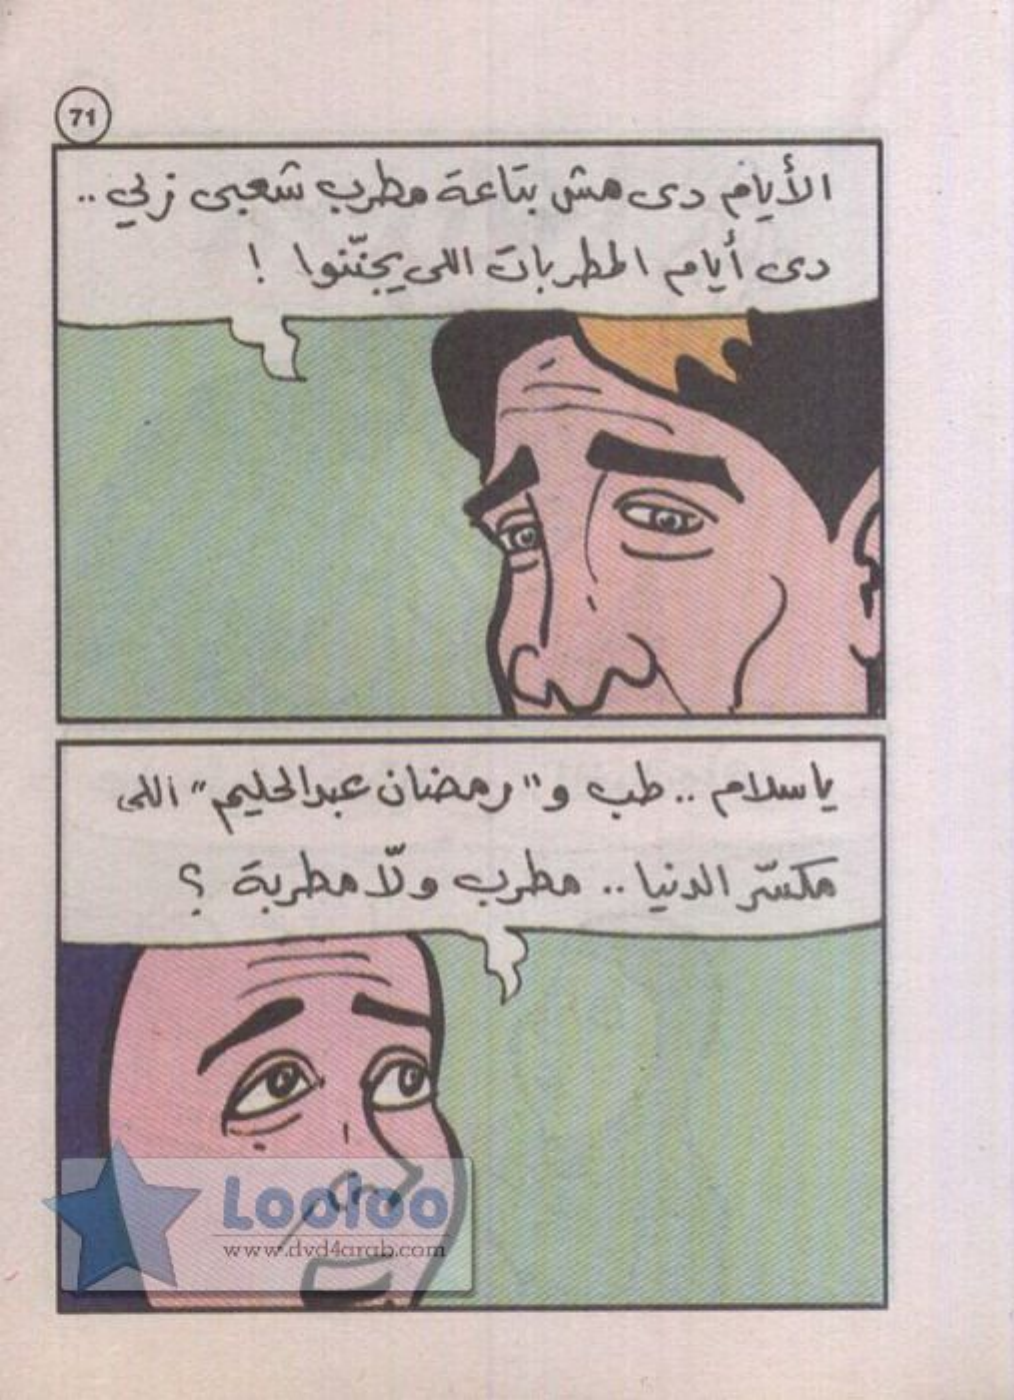 71
الأيام دى مش بتاعة مطرب شعبى زيي ..
دى أيام المطربات اللى يجنّنوا !
ياسلام .. طب و "رمضان عبدالحليم" اللى
مكسّر الدنيا .. مطرب ولّا مطربة ؟
Looloo
www.dvd4arab.com